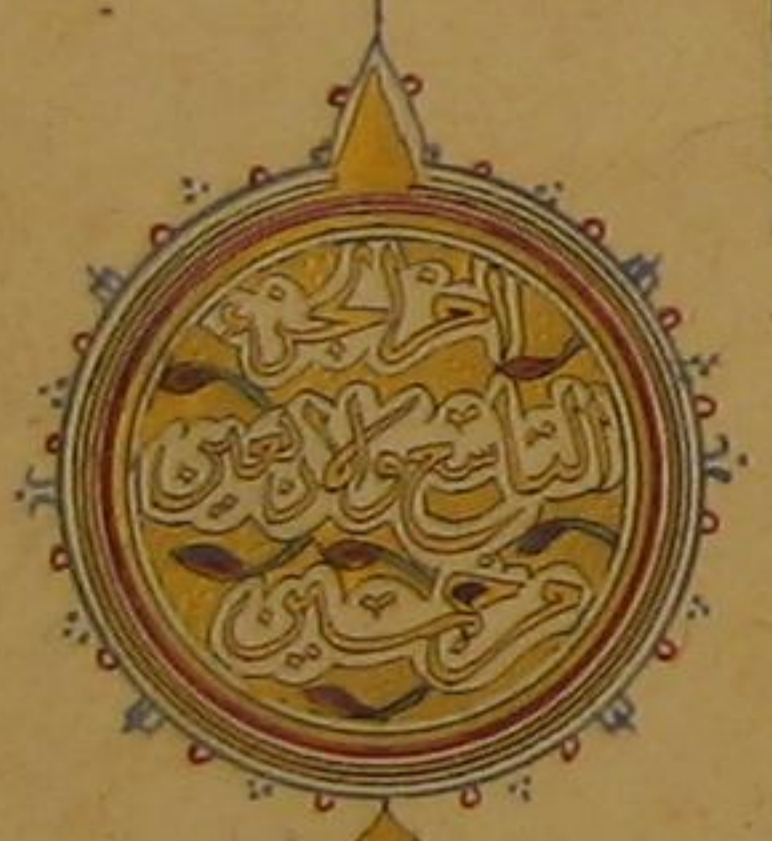 اخر الجزء
التاسع والاربعين
من خمسين